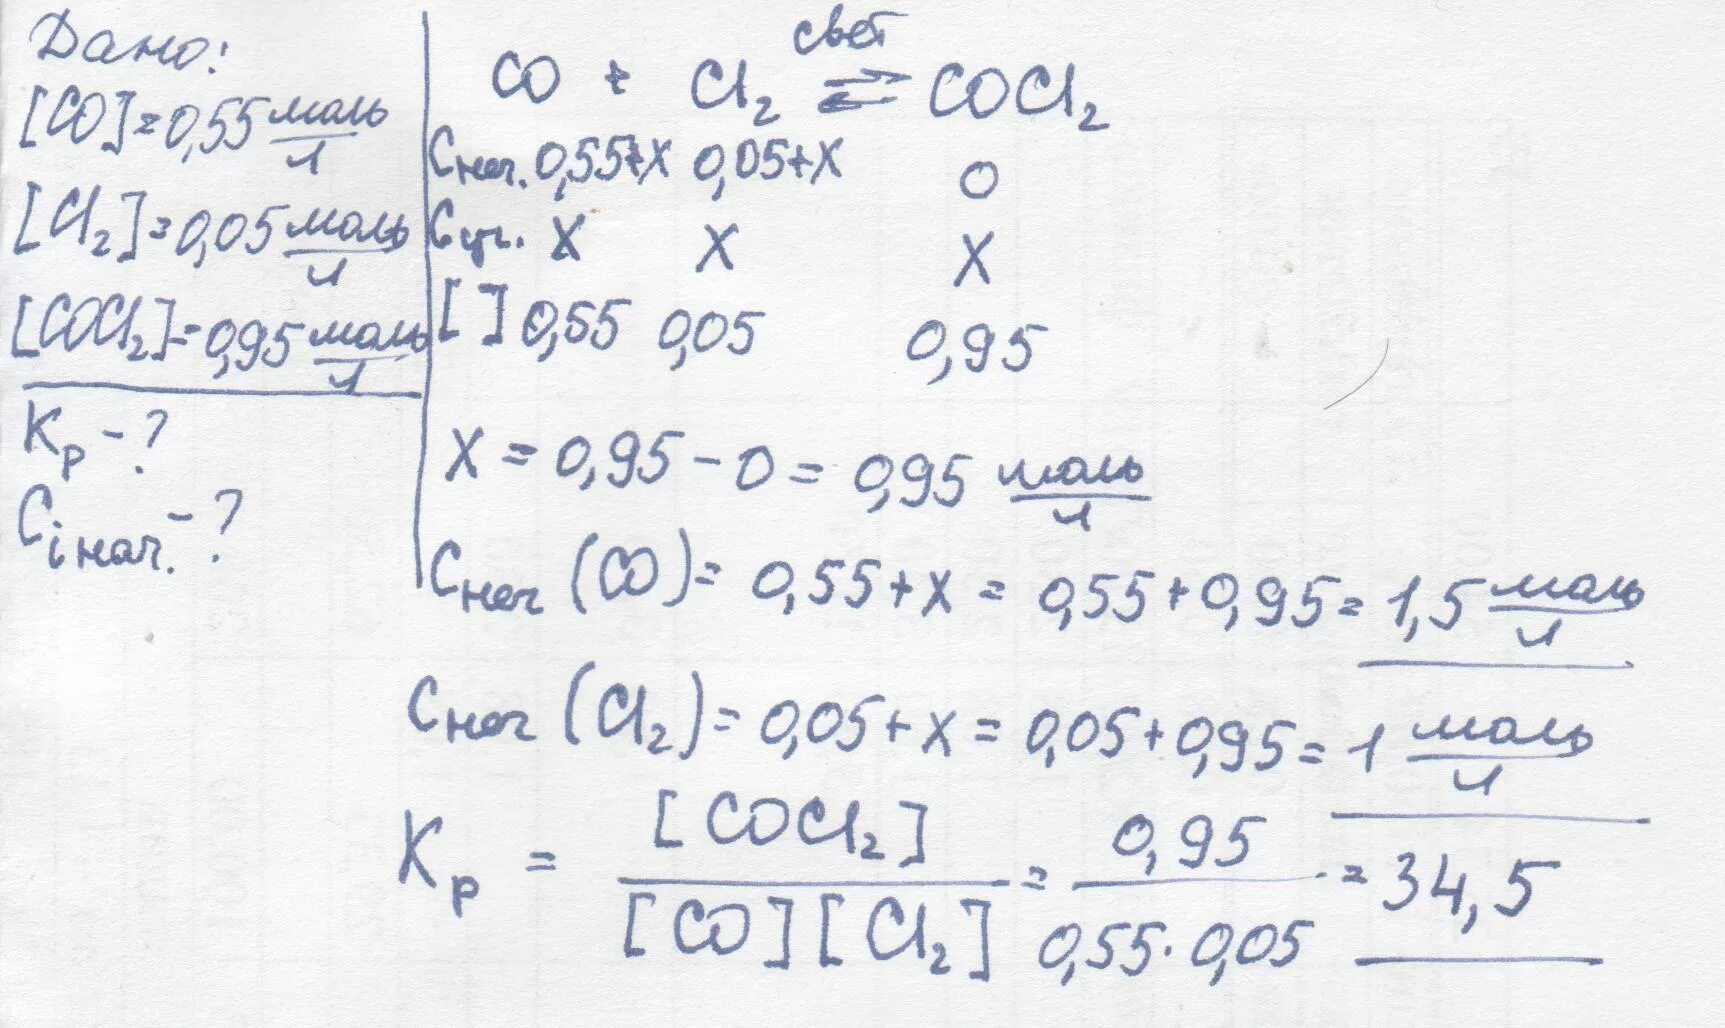 Дано:
[CO]=0,55 моль/л
[Cl₂]=0,05 моль/л
[COCl₂]=0,95 моль/л
Kр-?
Ci нач.-?
свет
CO + Cl₂ ⇌ COCl₂
Cнач. 0,55+X 0,05+X 0
Cуч. X X X
[ ] 0,55 0,05 0,95
X = 0,95 - 0 = 0,95 моль/л
Cнач (CO) = 0,55 + X = 0,55 + 0,95 = 1,5 моль/л
Cнач (Cl₂) = 0,05 + X = 0,05 + 0,95 = 1 моль/л
Kр = [COCl₂] / [CO][Cl₂] = 0,95 / 0,55·0,05 = 34,5